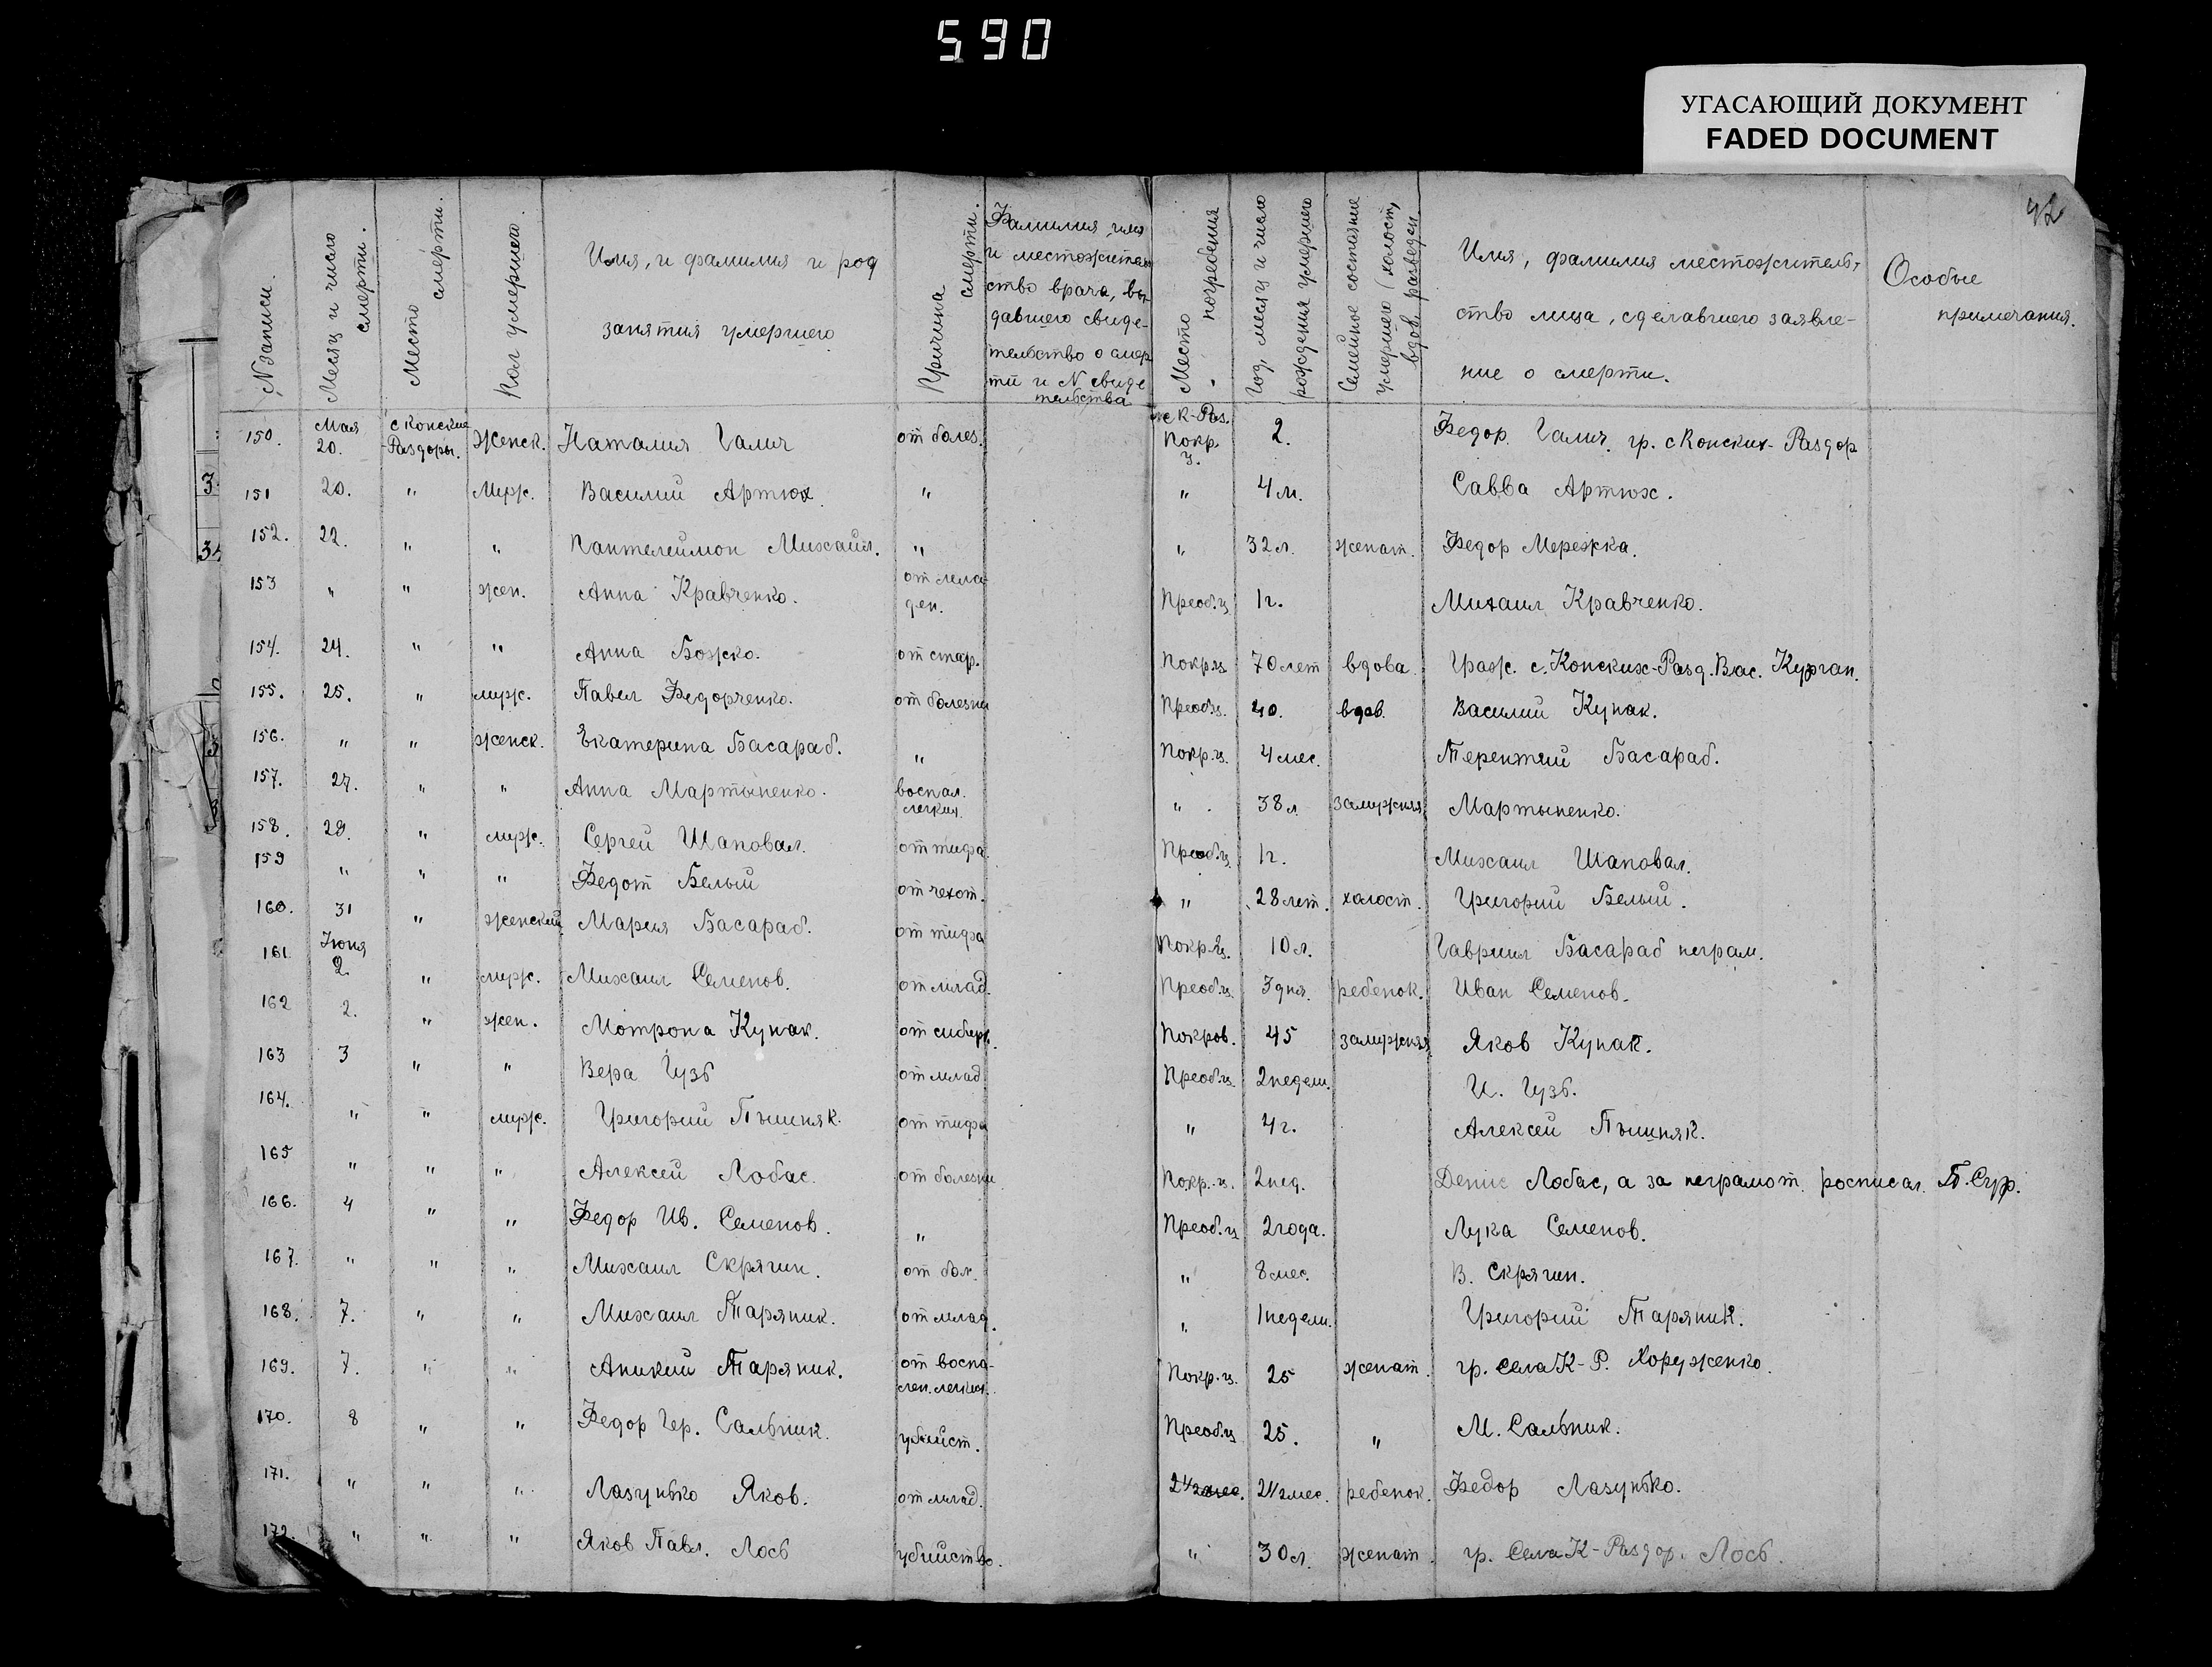 590
УГАСАЮЩИЙ ДОКУМЕНТ
FADED DOCUMENT
42
№ записи. Месяц и число смерти. Место смерти. Пол умершего. Имя, и фамилия и род занятия умершего Причина смерти. Фамилия, имя и местожительство врача, выдавшего свидетельство о смерти и № свидетельства Место погребения Год, месяц и число рождения умершего Семейное состояние умершего (холост, вдов, разведен Имя, фамилия местожительство лица, сделавшего заявление о смерти. Особые примечания.
150. Мая 20. с Конские-Раздоры. Женск. Наталия Галич от болез. К-Раз. Покр. ц. 2. Федор Галич гр. с Конских-Раздор
151 20. " Муж. Василий Артюх. " " 4 м. Савва Артюх.
152. 22. " " Пантелеймон Михайл. " " 32 л. женат. Федор Мережка.
153 " " жен. Анна Кравченко. от младен. Преоб.ц 1 г. Михаил Кравченко.
154. 24. " " Анна Божко. от стар. Покр.ц 70 лет вдова Граж. с. Конских-Разд. Вас. Курган.
155. 25. " муж. Павел Федорченко. от болезни Преоб.ц. 40. вдов. Василий Купак.
156. " " женск. Екатерина Басараб. " Покр.ц. 4 мес. Терентий Басараб.
157. 27. " " Анна Мартыненко. воспал. легких. " 38 л. замужняя Мартыненко.
158. 29. " муж. Сергей Шаповал. от тифа. Преоб.ц 1 г. Михаил Шаповал.
159 " " " Федот Белый от чехот. " 28 лет. холост. Григорий Белый.
160. 31 " женский Мария Басараб. от тифа Покр.ц. 10 л. Гавриил Басараб неграм.
161. Июня 2. " муж. Михаил Семенов. от млад. Преоб.ц. 3 дня. ребенок. Иван Семенов.
162 2. " жен. Мотрона Купак. от сибирк. Покров. 45 замужняя Яков Купак.
163 3 " " Вера Гузь от млад. Преоб.ц. 2 недели. И. Гузь.
164. " " муж. Григорий Пышняк. от тифа " 4 г. Алексей Пышняк.
165 " " " Алексей Лобас. от болезни Покр.ц. 2 нед. Денис Лобас, а за неграмот. росписал П. Сур.
166. 4 " " Федор Ив. Семенов. " Преоб.ц 2 года. Лука Семенов.
167. " " " Михаил Скрягин. от бол. " 8 мес. В. Скрягин.
168. 7. " " Михаил Таряник. от млад. " 1 недели. Григорий Таряник.
169. 7. " " Аникий Таряник. от воспален. легких. Покр.ц. 25 женат. гр. села К-Р. Хоруженко.
170. 8 " " Федор Гер. Сальник. убийст. Преоб.ц 25. " М. Сальник.
171. " " " Лазунько Яков. от млад. 2 1/2 мес. 2 1/2 мес. ребенок. Федор Лазунько.
172. " " " Яков Павл. Лось убийство. " 30 л. женат. гр. Села К-Раздор. Лось.